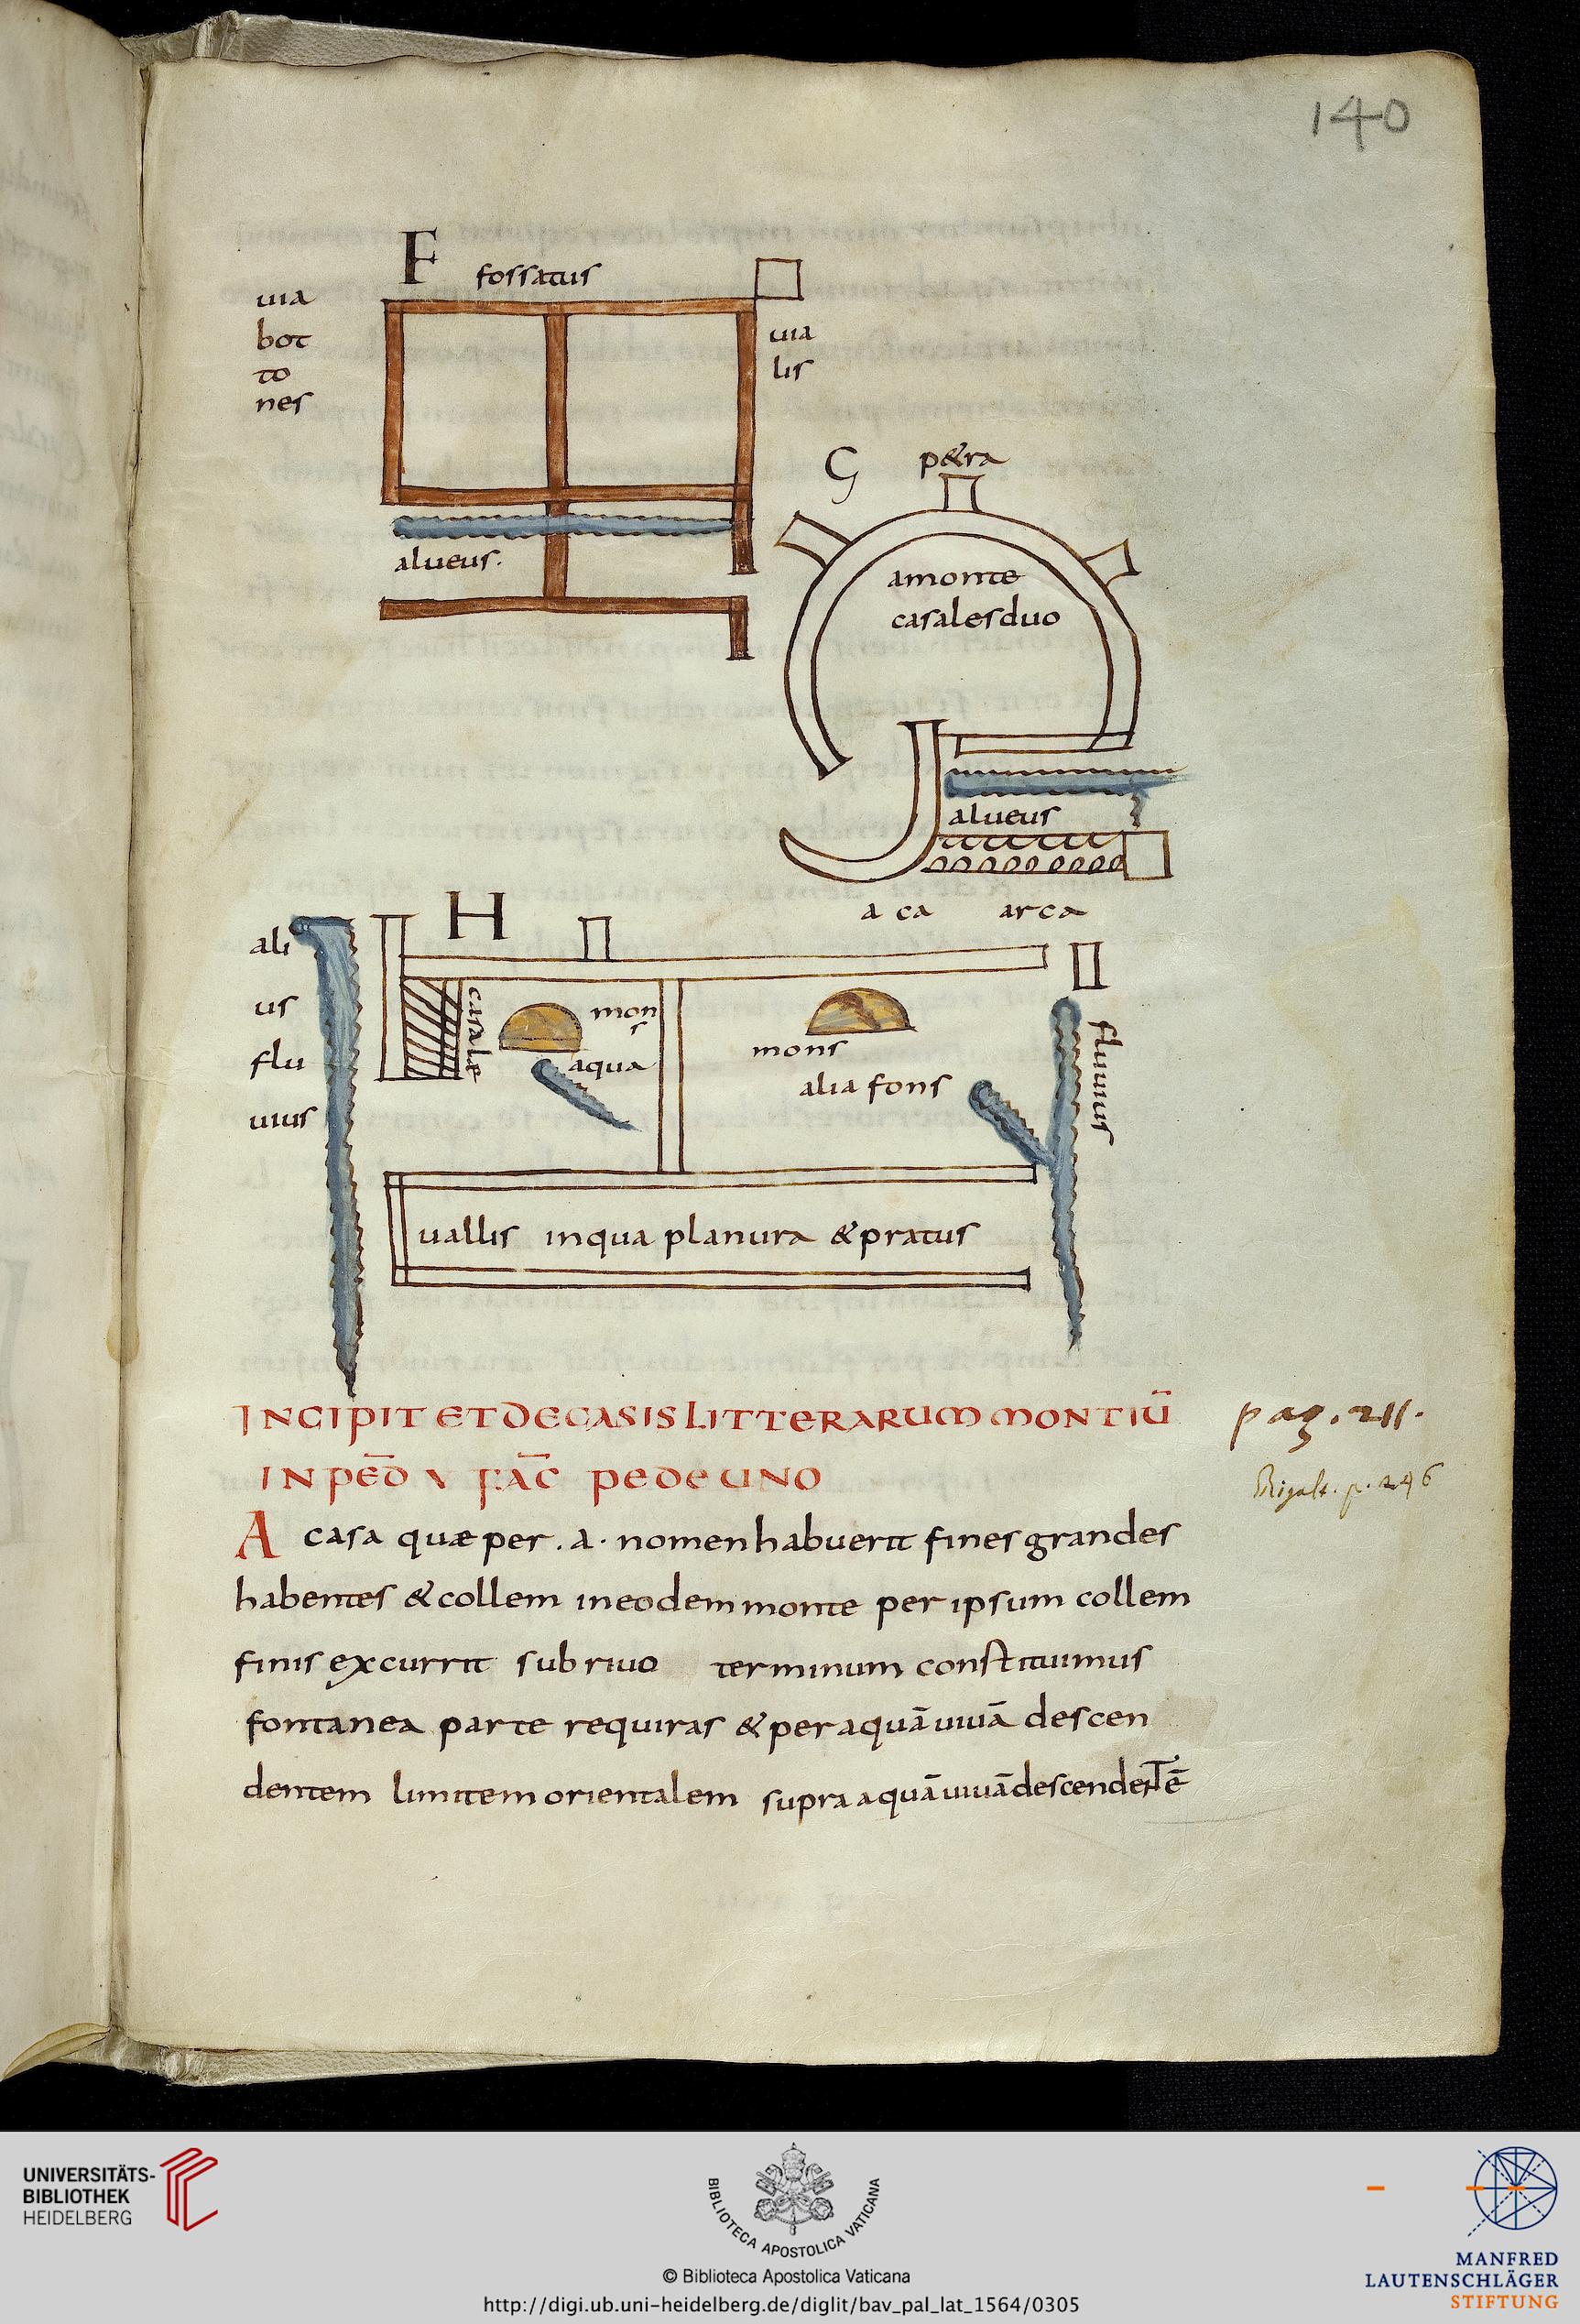 140
F
fossatus
uia
bot
to
nes
uia
lis
alueus.
G
p&ra
amonte
casalesduo
alueus
a ca arca
H
ali
us
flu
uius
casalę
mon
s
aqua
mons
alia fons
fluuius
uallis inqua planura &pratus
INCIPIT ET DE CASIS LITTERARUM MONTIŪ
pag. 211.
IN PED̄ V FAC̄ PEDE UNO
Rigalt. p. 246
A casa quæ per .a. nomen habuerit fines grandes
habentes & collem ineodem monte per ipsum collem
finis excurrit sub riuo terminum constituimus
fontanea parte requiras & per aquā uiuā descen
dentem limitem orientalem supra aquā uiuā descendentē
UNIVERSITÄTS-
BIBLIOTHEK
HEIDELBERG
BIBLIOTECA APOSTOLICA VATICANA
© Biblioteca Apostolica Vaticana
http://digi.ub.uni-heidelberg.de/diglit/bav_pal_lat_1564/0305
MANFRED
LAUTENSCHLÄGER
STIFTUNG